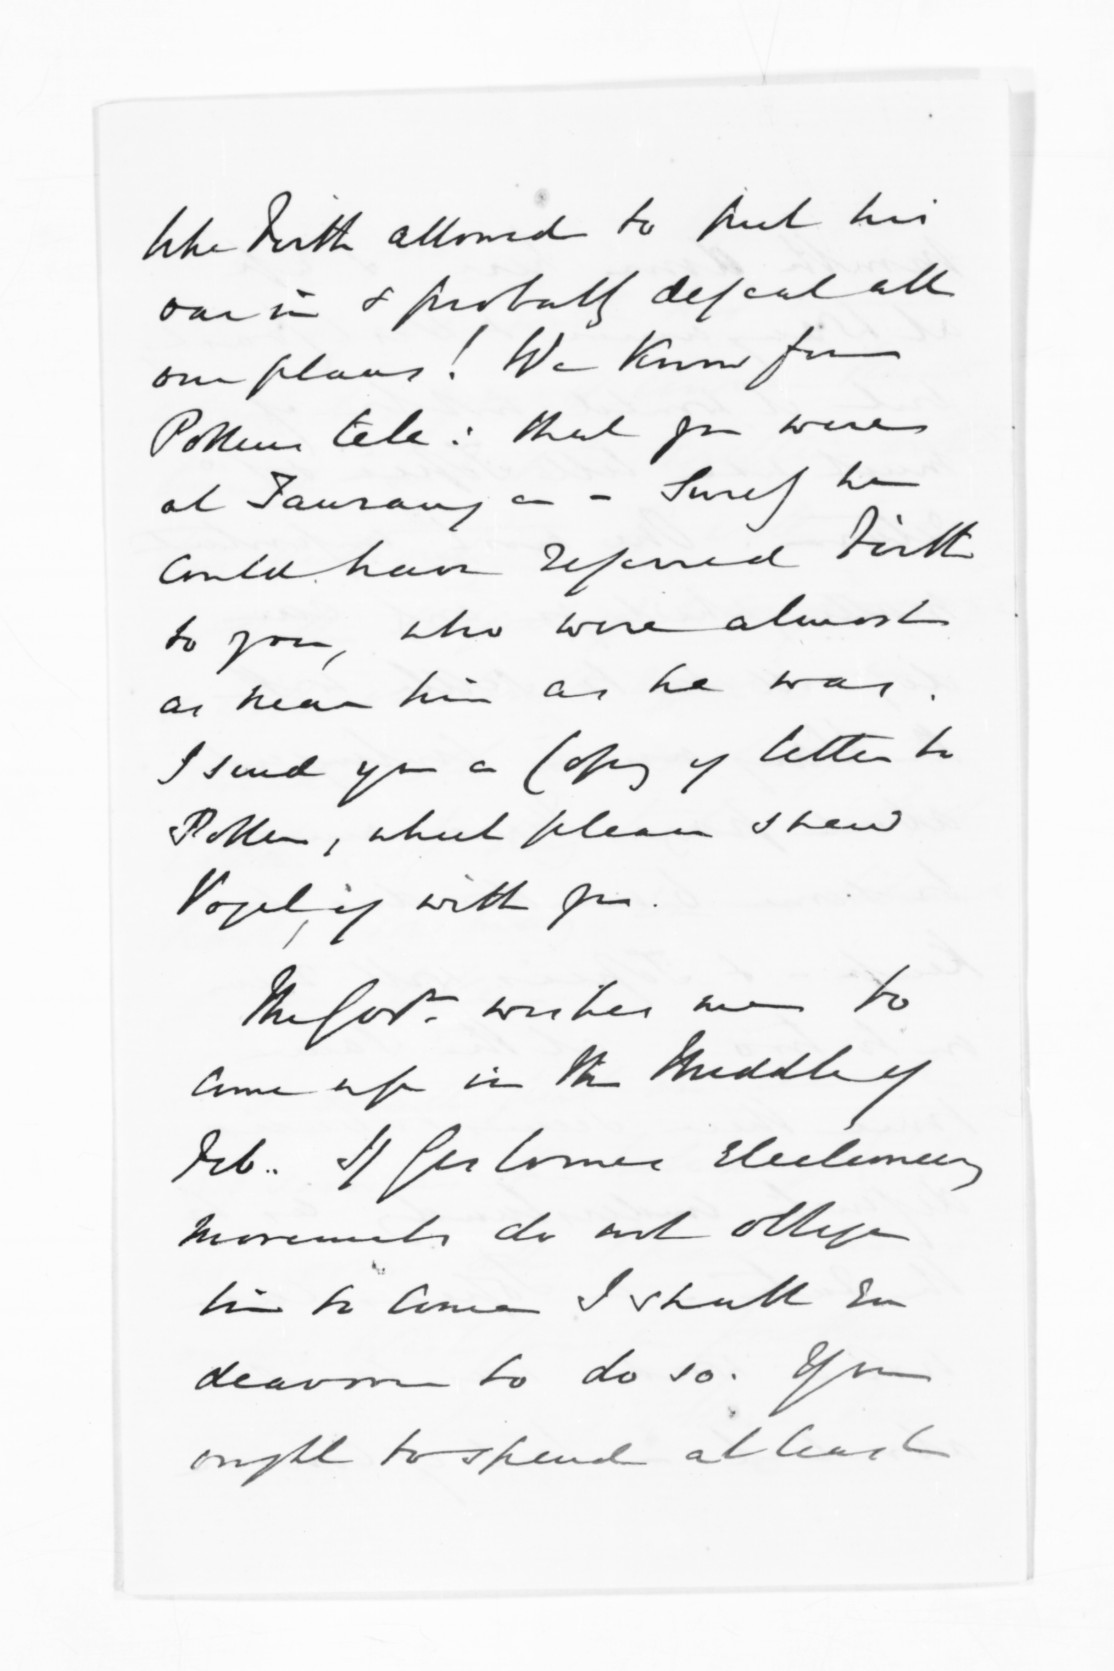 like Firth allowed to put his
oar in & probably defeat all
our plans! We know from
Pollens tele: that you were
at Tauranga - Surely he
could have referred Firth
to you, who were almost
as near him as he was.
I send you a Copy of letter to
Pollen, which please shew
Vogel, if with you.
The Govr. wishes me to
come up in the Middle of
Feb.. If electioneering
movements do not oblige
him to come I shall en
deavour to do so. You
ought to spend at least